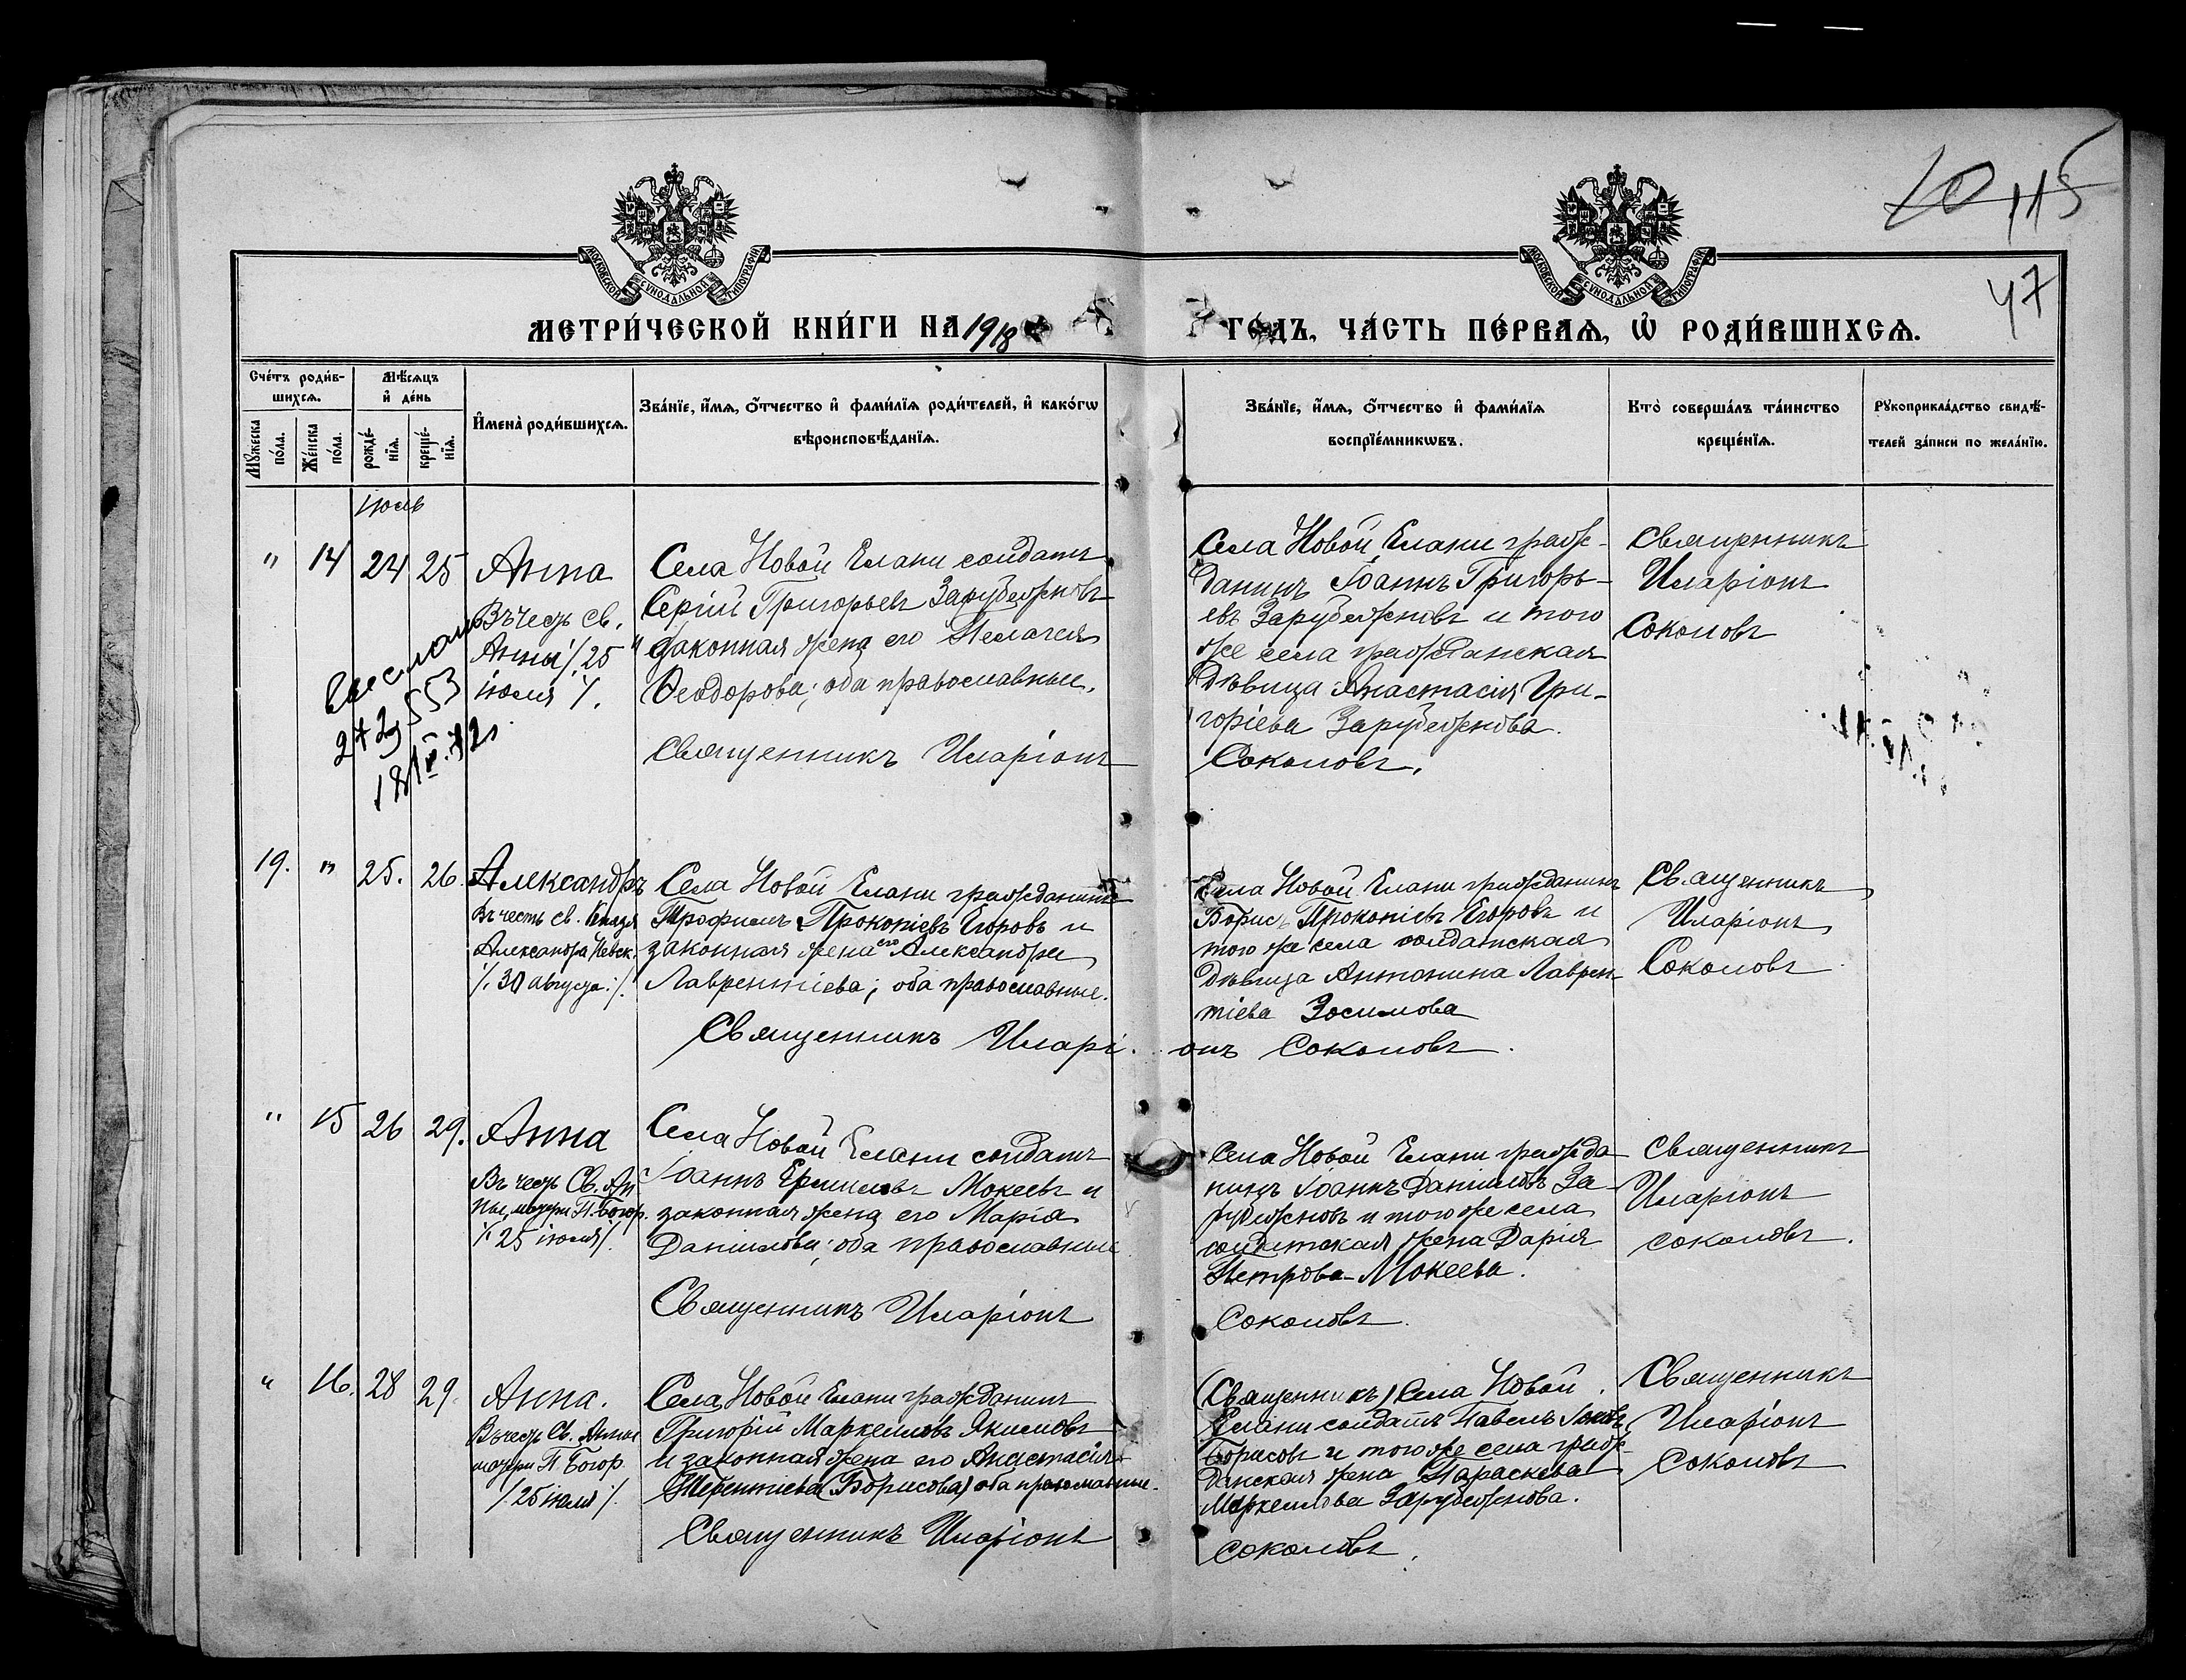 115
47
МОСКОВСКОЙ СѴНОДАЛЬНОЙ ТИПОГРАФІИ
МОСКОВСКОЙ СѴНОДАЛЬНОЙ ТИПОГРАФІИ
МЕТРИ́ЧЕСКОЙ КНИ́ГИ НА 1918
ГО́ДЪ, ЧА́СТЬ ПЕ́РВАѦ, Ѡ҆ РОДИ́ВШИХСѦ.
Сче́тъ роди́в-
шихсѧ.
Мꙋ́жеска по́ла.
Же́нска по́ла.
Мѣ́сѧцъ
и҆ де́нь
рожде́-
нїѧ.
креще́-
нїѧ.
И҆мена̀ роди́вшихсѧ.
Зва́нїе, и҆́мѧ, ѻ҆́тчество и҆ фами́лїѧ роди́телей, и҆ како́гѡ
вѣроисповѣ́данїѧ.
Зва́нїе, и҆́мѧ, ѻ҆́тчество и҆ фами́лїѧ
воспрїе́мникѡвъ.
Кто̀ соверша́лъ та́инство
креще́нїѧ.
Рꙋкоприкла́дство свидѣ́-
телей за́писи по жела́нїю.
іюль
" 14 24 25
Анна
Въ честь св.
Анны /. 25
іюля /.
Села Новой Елани солдатъ
Сергій Григорьевъ Зарубежновъ
и законная жена его Пелагея
Ѳеодорова; оба православные.
Священникъ Иларіонъ
Села Новой Елани граж-
данинъ Іоаннъ Григорь-
евъ Зарубежновъ и того
же села гражданская
дѣвица Анастасія Гри-
горіева Зарубежнова.
Соколовъ.
Священникъ
Иларіонъ
Соколовъ
19. " 25. 26.
Александръ
Въ честь св. Князя
Александра Невск.
/. 30 августа. /.
Села Новой Елани гражданинъ
Трофимъ Прокопіевъ Егоровъ и
законная жена его Александра
Лаврентіева; оба православные.
Священникъ Иларі-
Села Новой Елани гражданинъ
Борисъ Прокопіевъ Егоровъ и
того же села солдатская
дѣвица Антонина Лаврен-
тіева Зосимова
онъ Соколовъ.
Священникъ
Иларіонъ
Соколовъ
" 15 26 29.
Анна
Въ честь Св. Ан-
ны, матери П. Богор.
/. 25 іюля /.
Села Новой Елани солдатъ
Іоаннъ Ермиловъ Мокеевъ и
законная жена его Марія
Данилова; оба православные
Священникъ Иларіонъ
Села Новой Елани гражда-
нинъ Іоаннъ Даниловъ За-
рубежновъ и того же села
солдатская жена Дарія
Петрова Мокеева.
Соколовъ.
Священникъ
Иларіонъ
Соколовъ.
" 16. 28 29.
Анна.
Въ честь Св. Анны
матери П. Богор.
/. 25 іюля /.
Села Новой Елани гражданинъ
Григорій Маркелловъ Якимовъ
и законная жена его Анастасія
Терентіева (Борисова) оба православные.
Священникъ Иларіонъ
(Священникъ) Села Новой
Елани солдатъ Павелъ
Борисовъ и того же села граж-
данская жена Параскева
Маркеллова Зарубежнова.
Соколовъ.
Священникъ
Иларіонъ
Соколовъ